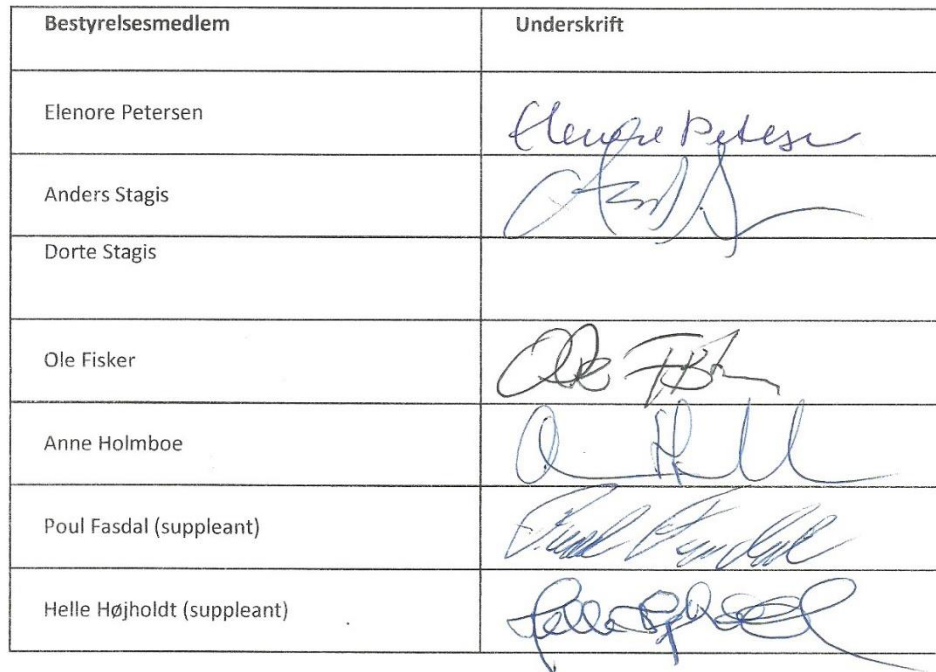 Bestyrelsesmedlem Underskrift
Elenore Petersen Elenore Petersen
Anders Stagis
Dorte Stagis
Ole Fisker Ole
Anne Holmboe
Poul Fasdal (suppleant)
Helle Højholdt (suppleant) Helle